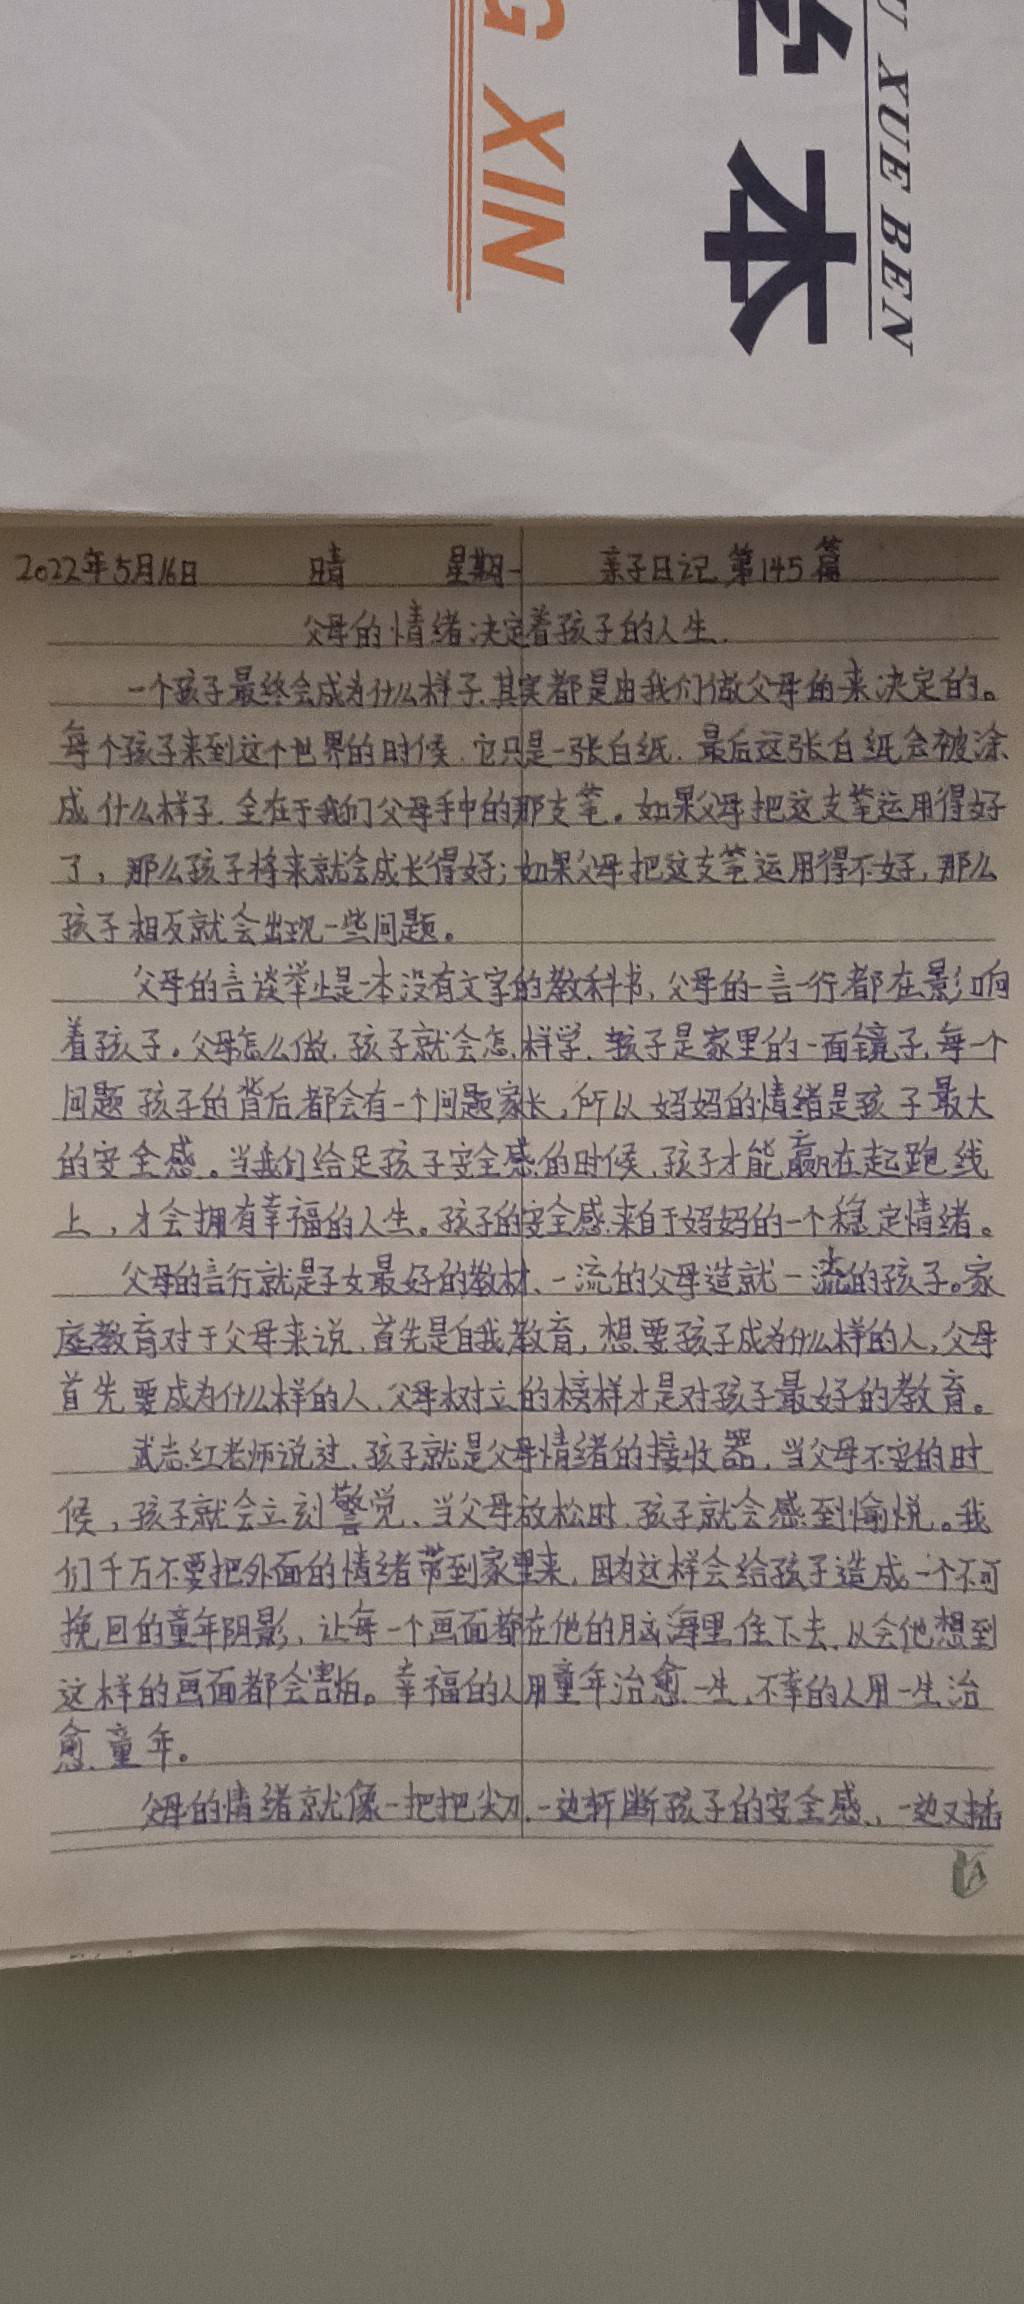 G XIN
本
U XUE BEN
2022年5月16日 晴 星期一 亲子日记 第145篇
父母的情绪决定着孩子的人生.
一个孩子最终会成为什么样子.其实都是由我们做父母的来决定的。
每个孩子来到这个世界的时候.它只是一张白纸.最后这张白纸会被涂
成什么样子.全在于我们父母手中的那支笔。如果父母把这支笔运用得好
了，那么孩子将来就会成长得好；如果父母把这支笔运用得不好，那么
孩子相反就会出现一些问题。
父母的言谈举止是一本没有文字的教科书，父母的一言一行都在影响
着孩子。父母怎么做.孩子就会怎样学.孩子是家里的一面镜子,每一个
问题孩子的背后都会有一个问题家长,所以妈妈的情绪是孩子最大
的安全感。当我们给足孩子安全感的时候,孩子才能赢在起跑线
上，才会拥有幸福的人生。孩子的安全感来自于妈妈的一个稳定情绪。
父母的言行就是子女最好的教材、一流的父母造就一流的孩子。家
庭教育对于父母来说.首先是自我教育，想要孩子成为什么样的人,父母
首先要成为什么样的人.父母树立的榜样才是对孩子最好的教育。
武志红老师说过、孩子就是父母情绪的接收器.当父母不安的时
候，孩子就会立刻警觉、当父母放松时.孩子就会感到愉悦。我
们千万不要把外面的情绪带到家里来，因为这样会给孩子造成一个不可
挽回的童年阴影、让每一个画面都在他的脑海里住下去.以会他想到
这样的画面都会害怕。幸福的人用童年治愈一生,不幸的人用一生治
愈童年。
父母的情绪就像一把把尖刀.一边斩断孩子的安全感、一边又插